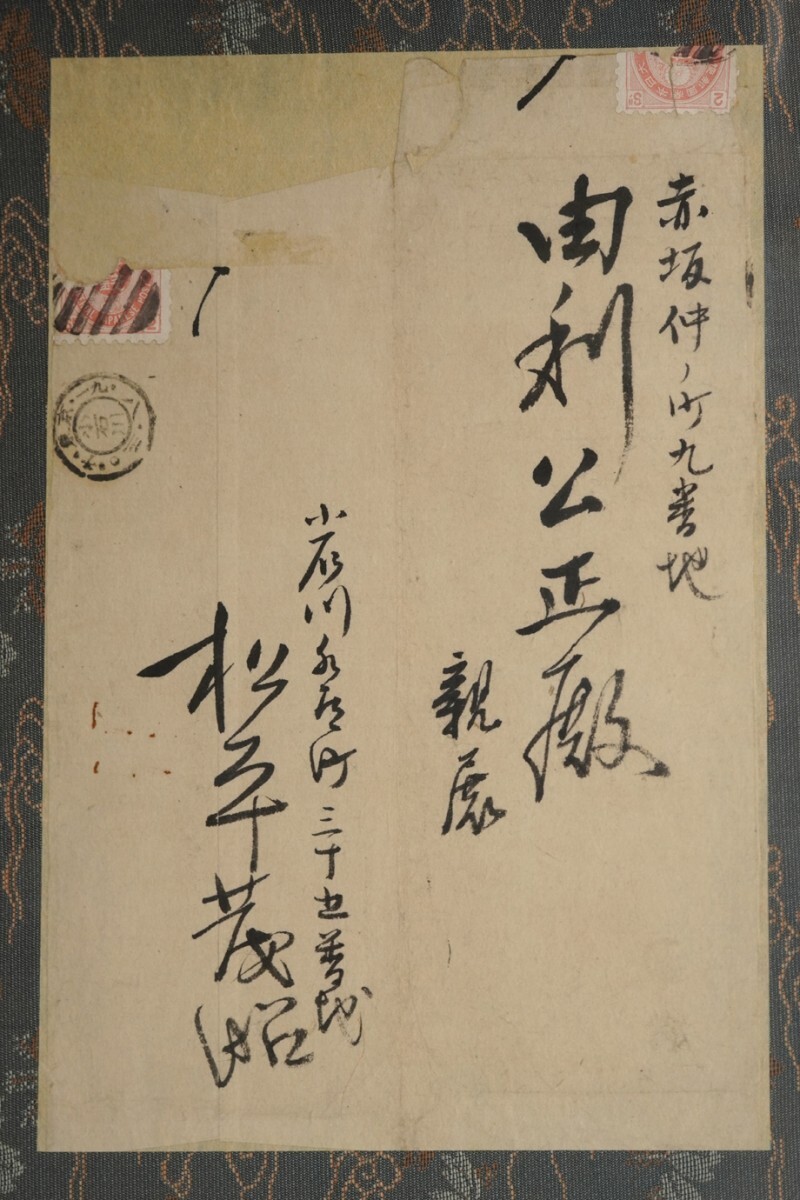 赤坂仲ノ町九番地
由利公正殿
親展
小石川水道町三十五番地
松平茂昭
2 Sⁿ